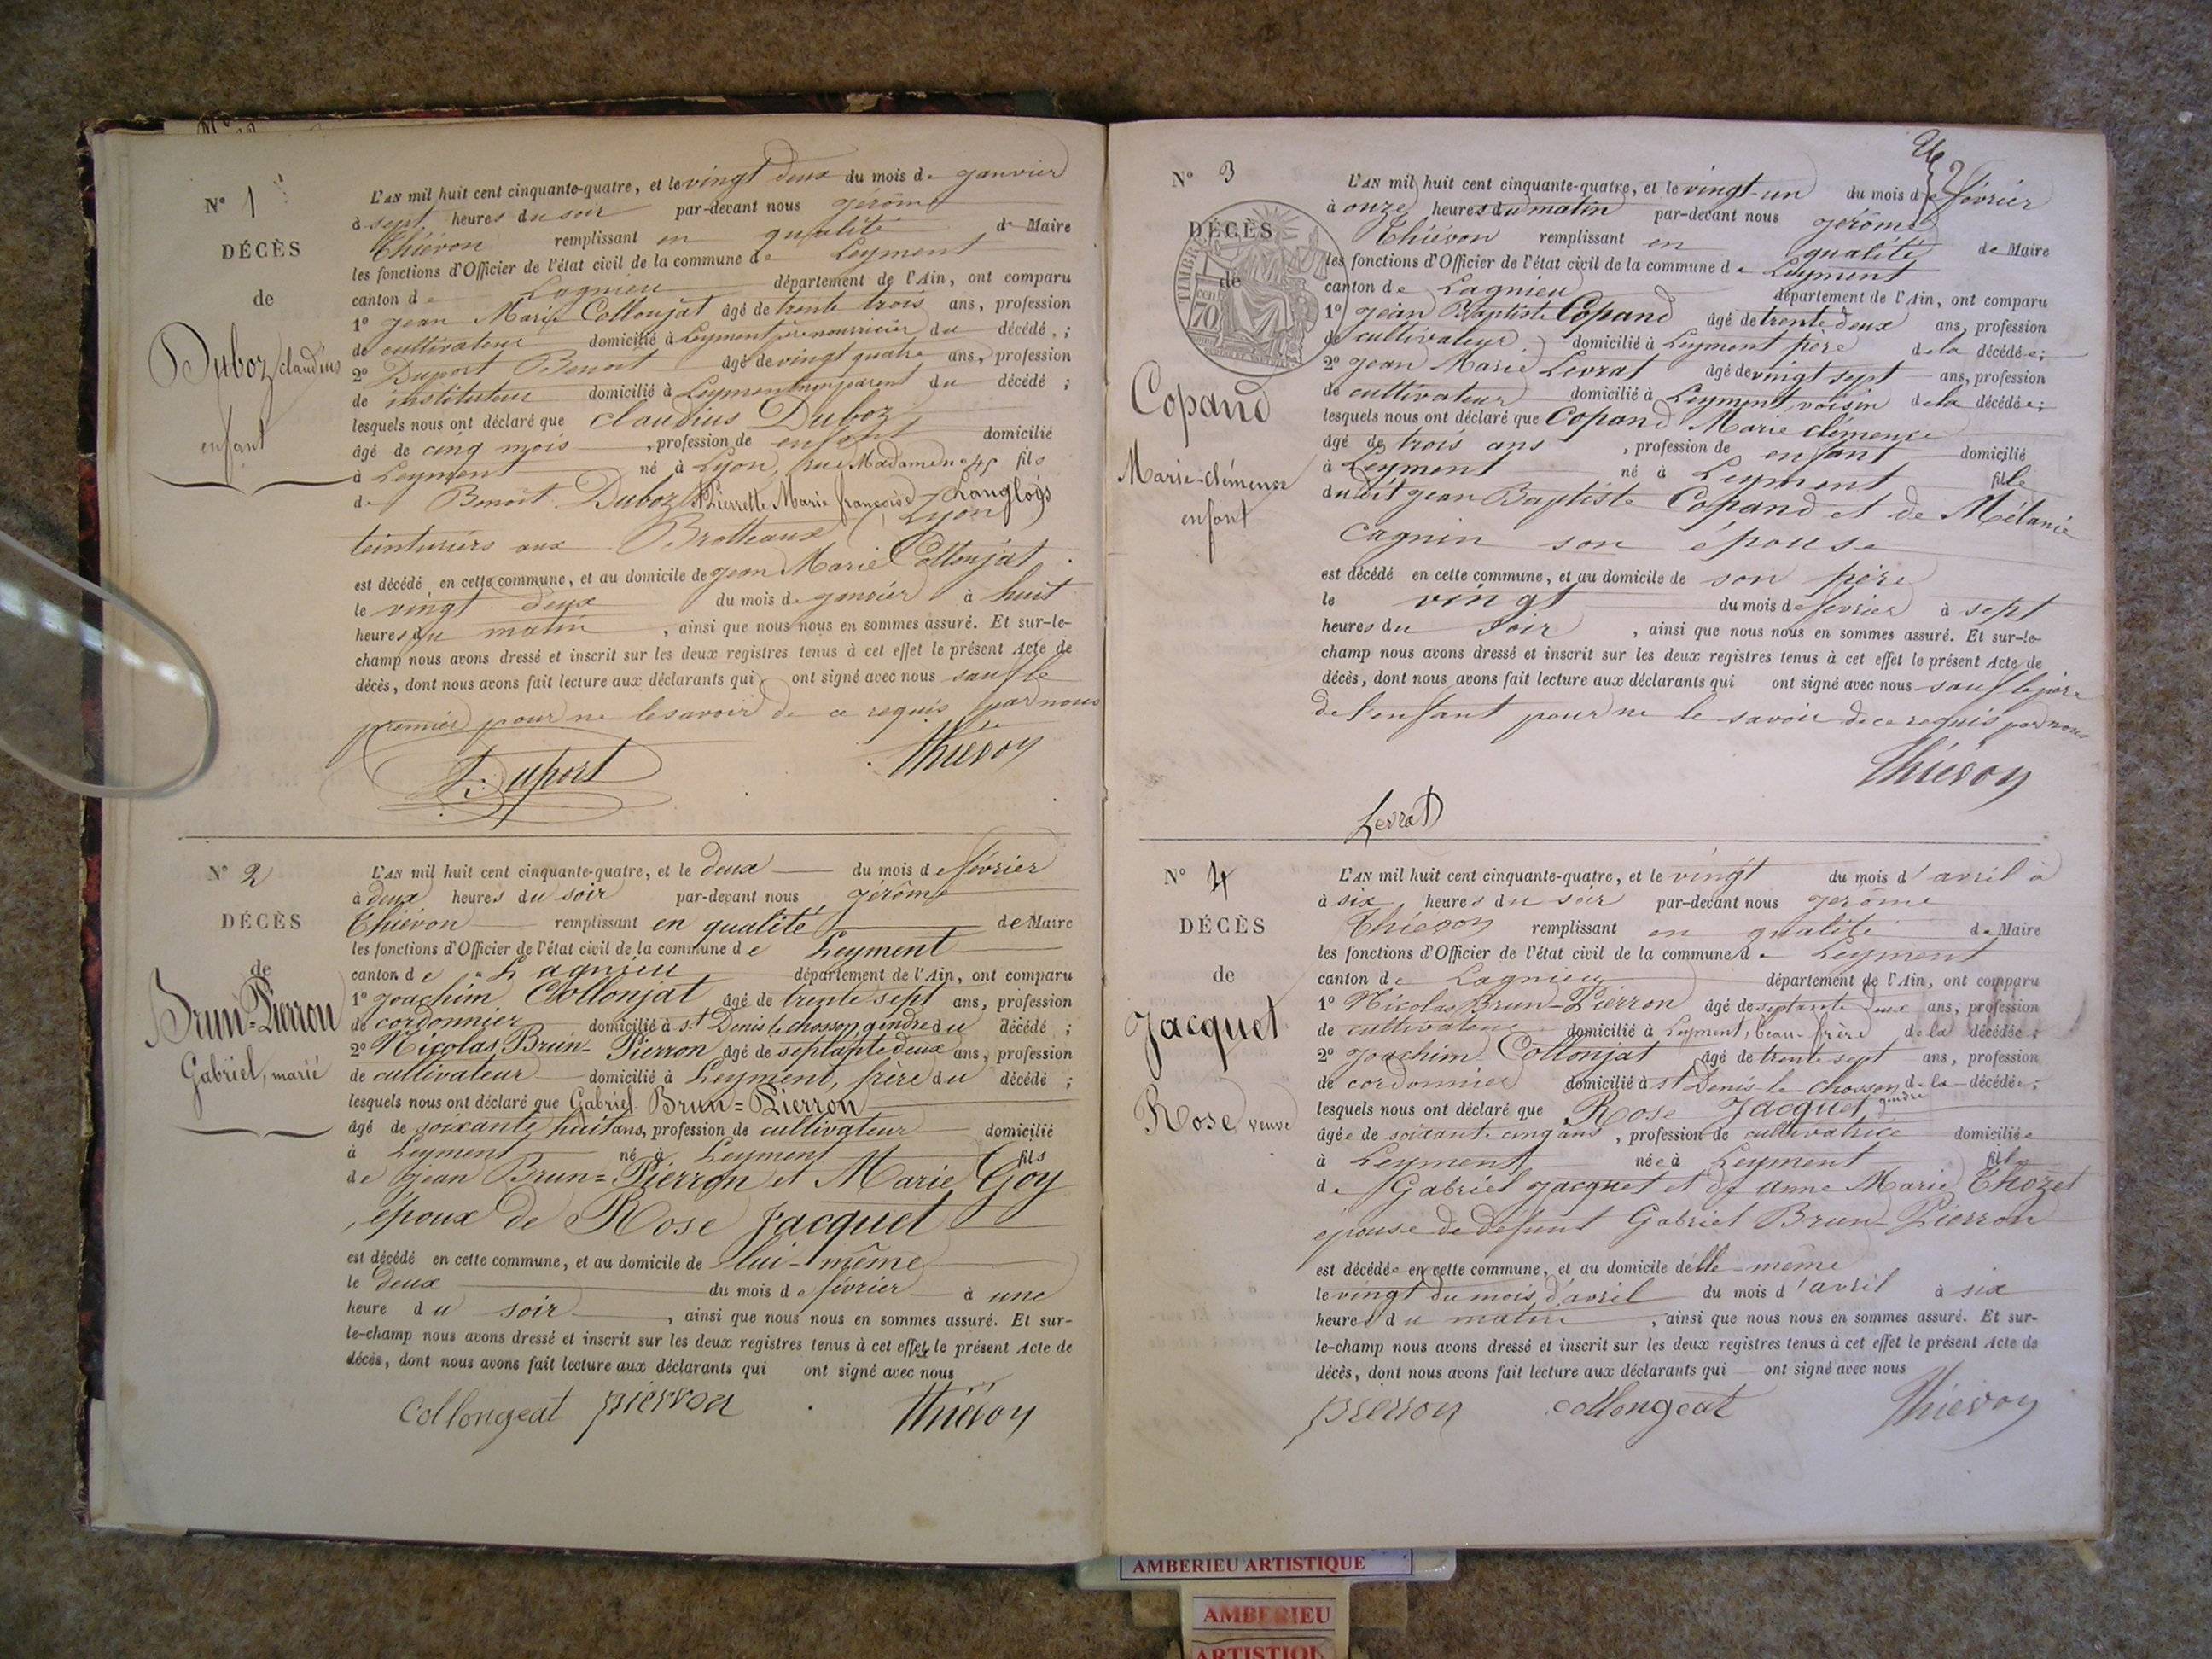 N° 1
DÉCÈS
de
Duboz claudius
enfant
L'AN mil huit cent cinquante-quatre, et le vingt deux du mois de janvier
à sept heures du soir par-devant nous jérôme
Thiévon remplissant en qualité de Maire
les fonctions d'Officier de l'état civil de la commune de Leyment
canton de Lagnieu département de l'Ain, ont comparu
1° jean Marie Collonjat âgé de trente trois ans, profession
de cultivateur domicilié à Leyment père nourricier du décédé ;
2° Duport Benoit âgé de vingt quatre ans, profession
de instituteur domicilié à Leyment non parent du décédé ;
lesquels nous ont déclaré que claudius Duboz
âgé de cinq mois , profession de enfant domicilié
à Leyment né à Lyon, rue Madame n° 45 fils
de Benoit Duboz & Pierrette Marie françoise Langlois
teinturiers aux Brotteaux (Lyon)
est décédé en cette commune, et au domicile de jean Marie Collonjat
le vingt deux du mois de janvier à huit
heures du matin , ainsi que nous nous en sommes assuré. Et sur-le-
champ nous avons dressé et inscrit sur les deux registres tenus à cet effet le présent Acte de
décès, dont nous avons fait lecture aux déclarants qui ont signé avec nous sauf le
premier pour ne le savoir de ce requis par nous
Duport Thiévon
N° 2
DÉCÈS
de
Brun=Pierron
Gabriel, marié
L'AN mil huit cent cinquante-quatre, et le deux du mois de février
à deux heures du soir par-devant nous jérôme
Thiévon remplissant en qualité de Maire
les fonctions d'Officier de l'état civil de la commune de Leyment
canton de Lagnieu département de l'Ain, ont comparu
1° joachim Collonjat âgé de trente sept ans, profession
de cordonnier domicilié à St Denis le chosson, gendre du décédé ;
2° Nicolas Brun-Pierron âgé de septante deux ans, profession
de cultivateur domicilié à Leyment, frère du décédé ;
lesquels nous ont déclaré que Gabriel Brun=Pierron
âgé de soixante huit ans, profession de cultivateur domicilié
à Leyment né à Leyment fils
de jean Brun=Pierron et Marie Goy
époux de Rose Jacquet
est décédé en cette commune, et au domicile de lui-même
le deux du mois de février à une
heure du soir , ainsi que nous nous en sommes assuré. Et sur-
le-champ nous avons dressé et inscrit sur les deux registres tenus à cet effet le présent Acte de
décès, dont nous avons fait lecture aux déclarants qui ont signé avec nous
Collongeat pierron Thiévon
N° 3
DÉCÈS
de
TIMBRE
70
Copand
Marie-clémense
enfant
L'AN mil huit cent cinquante-quatre, et le vingt-un du mois de février
à onze heures du matin par-devant nous jérôme
Thiévon remplissant en qualité de Maire
les fonctions d'Officier de l'état civil de la commune de Leyment
canton de Lagnieu département de l'Ain, ont comparu
1° jean Baptiste Copand âgé de trente deux ans, profession
de cultivateur domicilié à Leyment père de la décédée ;
2° jean Marie Levrat âgé de vingt sept ans, profession
de cultivateur domicilié à Leyment, voisin de la décédée ;
lesquels nous ont déclaré que Copand Marie clémense
âgé de trois ans , profession de enfant domicilié
à Leyment né à Leyment fille
du dit jean Baptiste Copand et de Mélanie
Cagnin son épouse
est décédé en cette commune, et au domicile de son père
le vingt du mois de février à sept
heures du soir , ainsi que nous nous en sommes assuré. Et sur-le-
champ nous avons dressé et inscrit sur les deux registres tenus à cet effet le présent Acte de
décès, dont nous avons fait lecture aux déclarants qui ont signé avec nous sauf le père
de l'enfant pour ne le savoir de ce requis par nous
Thiévon
Levrat
N° 4
DÉCÈS
de
Jacquet
Rose veuve
L'AN mil huit cent cinquante-quatre, et le vingt du mois d'avril à
à six heures du soir par-devant nous jérôme
Thiévon remplissant en qualité de Maire
les fonctions d'Officier de l'état civil de la commune de Leyment
canton de Lagnieu département de l'Ain, ont comparu
1° Nicolas Brun-Pierron âgé de septante deux ans, profession
de cultivateur domicilié à Leyment, beau-frère de la décédée ;
2° joachim Collonjat âgé de trente sept ans, profession
de cordonnier domicilié à St Denis-le chosson de la décédée ;
gendre
lesquels nous ont déclaré que Rose Jacquet
âgée de soixante cinq ans , profession de cultivatrice domiciliée
à Leyment née à Leyment fille
de Gabriel jacquet et de anne Marie Thozet
épouse de défunt Gabriel Brun-Pierron
est décédée en cette commune, et au domicile d'elle-même
le vingt du mois d'avril du mois d'avril à six
heures du matin , ainsi que nous nous en sommes assuré. Et sur-
le-champ nous avons dressé et inscrit sur les deux registres tenus à cet effet le présent Acte de
décès, dont nous avons fait lecture aux déclarants qui ont signé avec nous
pierron collongeat Thiévon
AMBERIEU ARTISTIQUE
AMBERIEU
ARTISTIQU